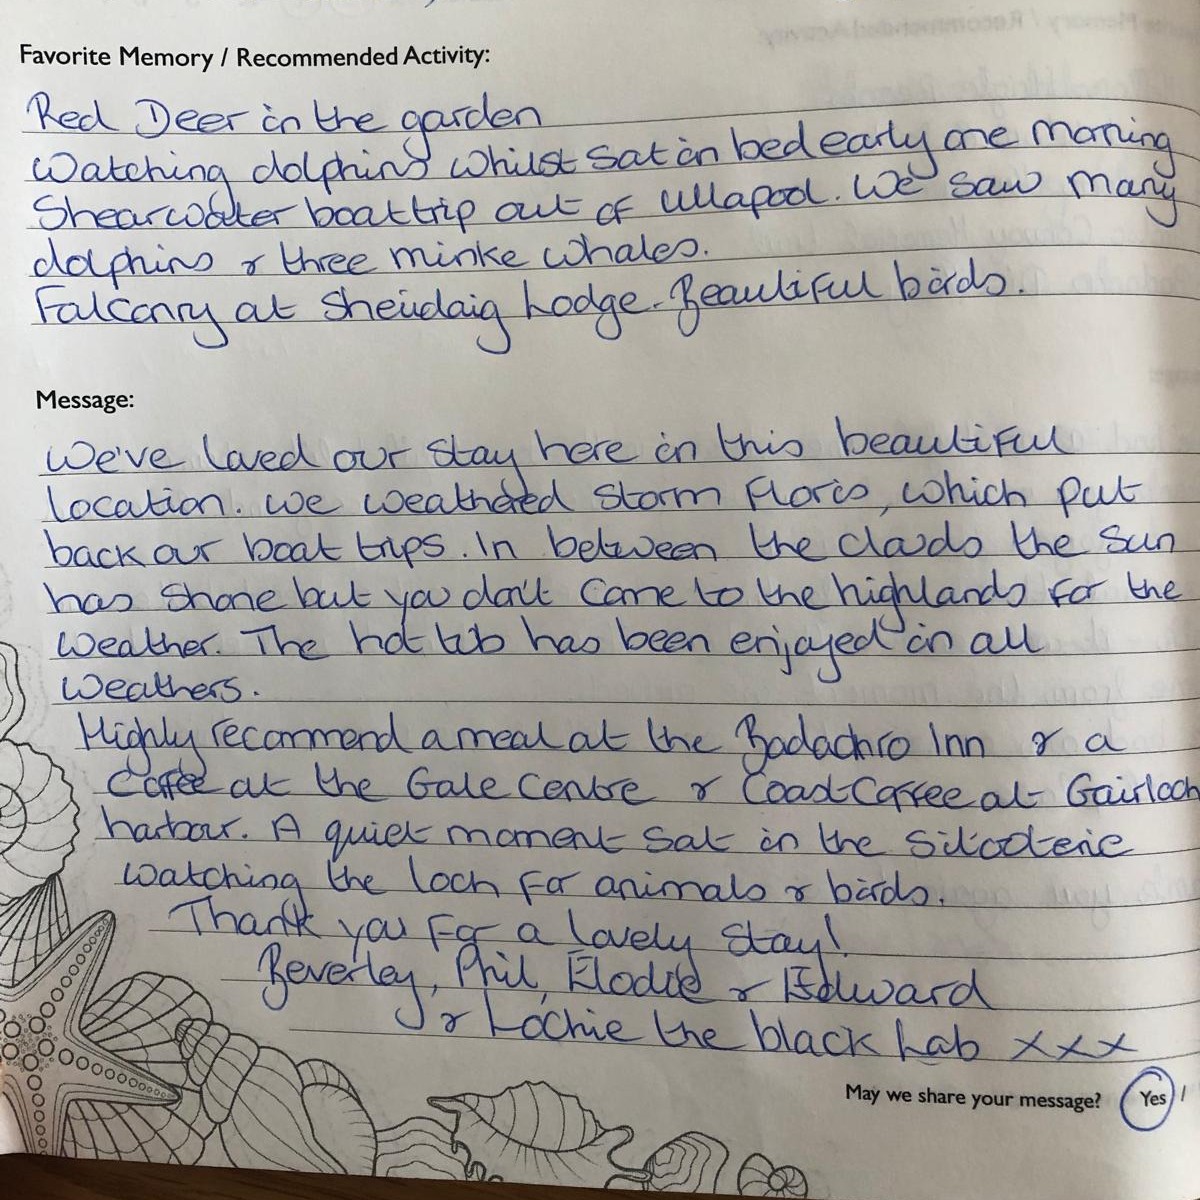 Favorite Memory / Recommended Activity:
Red Deer in the garden
Watching dolphins whilst sat in bed early one morning
Shearwater boat trip out of Ullapool. We saw many
dolphins & three minke whales.
Falconry at Sheildaig Lodge. Beautiful birds.
Message:
We've loved our stay here in this beautiful
location. We weathered Storm Floris, which put
back our boat trips. In between the clouds the sun
has shone but you don't come to the highlands for the
weather. The hot tub has been enjoyed in all
weathers.
Highly recommend a meal at the Badachro Inn & a
coffee at the Gale Centre & Coast Coffee at Gairloch
harbour. A quiet moment sat in the
watching the loch for animals & birds.
Thank you for a lovely stay!
Beverley, Phil, Elodie & Edward
& Lochie the black Lab xxx
May we share your message? Yes /